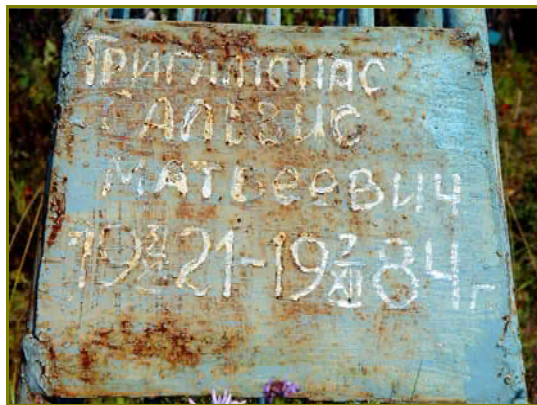 Григалюнас
Гальвис
Матвеевич
1921-19 2/XII 84 г